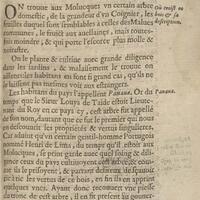 ON trouue aux Molucques vn certain arbre
domestic, de la grandeur d'vn Coignier, les
feuilles duquel sont semblables à celles des Maunes
communes, le fruict aux auellaines, mais toutes-
fois moindre, & qui porte l'escorce plus molle &
noirastre,
On le plante & cultiue auec grande diligence
dans les iardins, & malaisement le trouue on
ailleurs: les habitans en font si grand cas, qu'ils ne
le laissent pas mesmes voir aux estrangers.
Les habitans du pays l'appellent Pauana. Or du
temps que le Sieur Louys de Taide estoit Lieute-
nant du Roy en ce pays cy, cest arbre ne fut pas co-
gneu par son nom, d'autant que ce fut le premier qui nous
en descouurit les proprietez & vertus singulieres.
Car iaçoit qu'vn certain gentil-homme Portugois
nommé Henri de Lima, du temps qu'il estoit aux
Molucques, se print garde auec quel soing & dili-
gence ceux du pays cultiuoyent cest arbre, & com-
me ils le prisoyent, & partant desireux de sçauoir
la verité des vertus de cest arbre, il en fit
quelques vnes. Ayant donc recouuert vne piece
du tronc de cest arbre, il en fit present au gouuer-
Où croist ce
bois & sa
description.
Pauana.